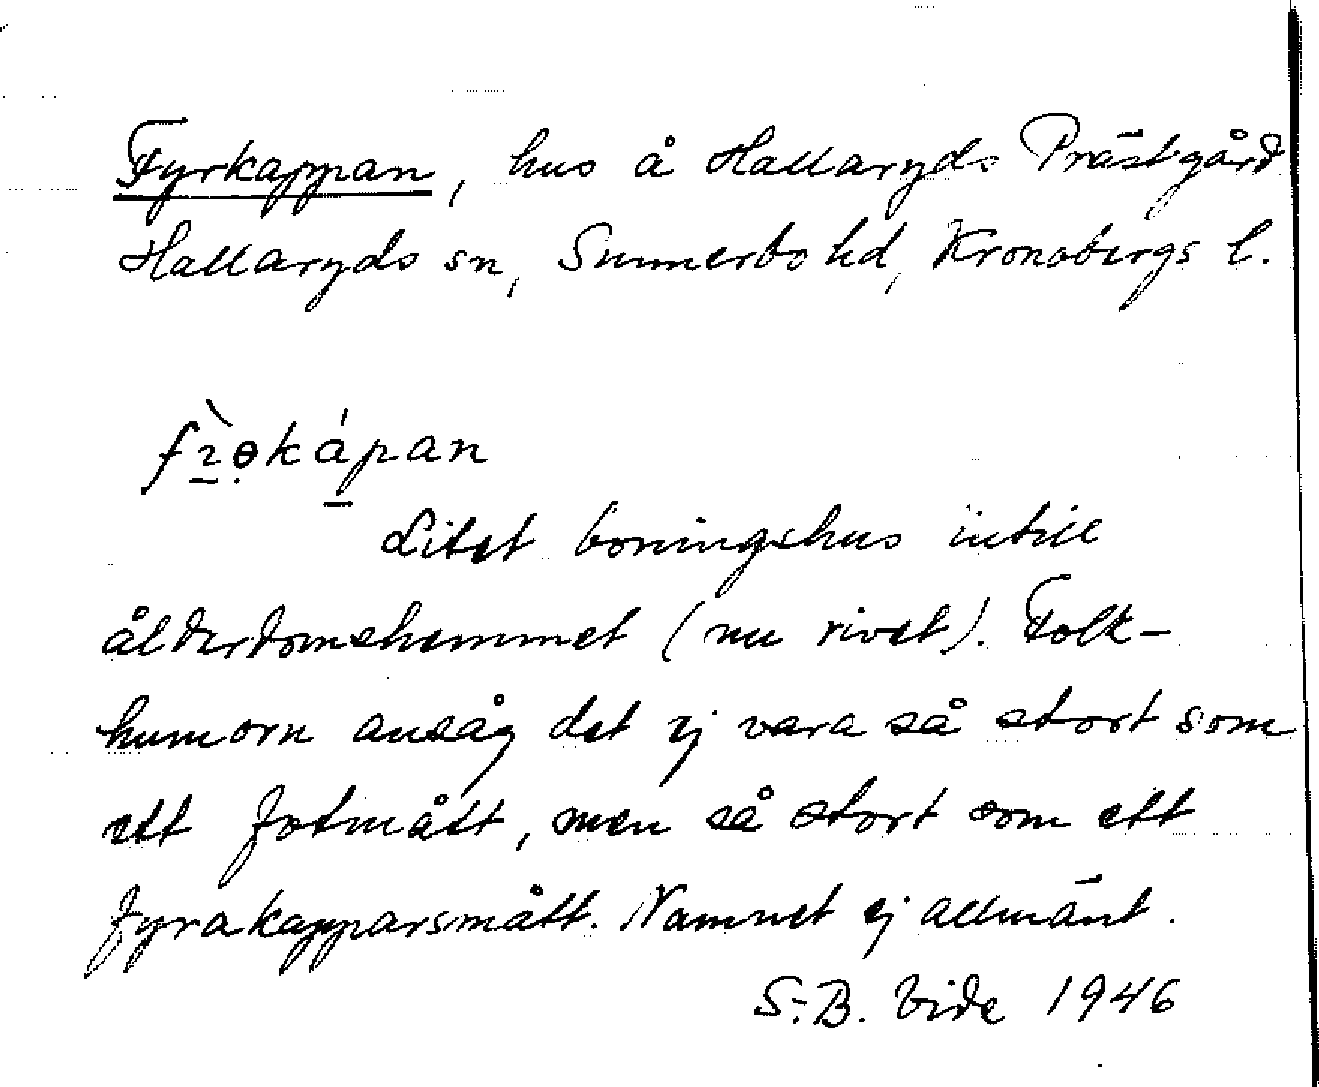 Fyrkappan, hus å Hallaryds Prästgård
Hallaryds sn, Sunnerbo hd, Kronobergs l.
Litet boningshus intill
ålderdomshemmet (nu rivet). Folk-
humorn ansåg det ej vara så stort som
ett fotmått, men så stort som ett
fyrakapparsmått. Namnet ej allmänt.
S.-B. Vide 1946